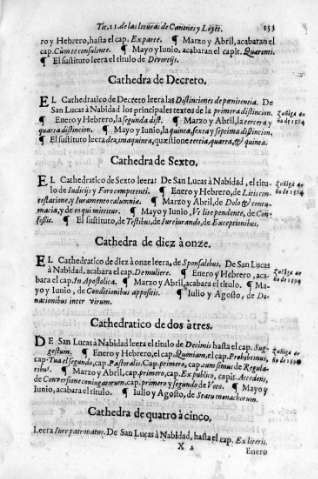 Tit. 21. de las leturas de Canones y Leyes. 153
ro y Hebrero, hasta el cap. Ex parte. ¶ Marzo y Abril, acabaran el
cap. Cum te consulente. ¶ Mayo y Iunio, acabaran el capit. Quaranti.
¶ El sustituto leera el titulo de
Cathedra de Decreto.
EL Cathedratico de Decreto leera las Distinciones de penitencia. De
San Lucas à Nabidad los principales textos de la primera distincion.
¶ Enero y Hebrero, la segunda dist. ¶ Marzo y Abril, la tercera y
quarta distincion. ¶ Mayo y Iunio, la quinta, sexta y septima distincion.
¶ El sustituto leera dezimaquinta, quæstione tercia, quarta, & quinta.
Cathedra de Sexto.
EL Cathedratico de Sexto leera: De San Lucas à Nabidad, el titu-
lo de Iudicijs y Foro competenti. ¶ Enero y Hebrero, de Litis con-
testatione, y Iuramento calumniæ. ¶ Marzo y Abril, de Dolo & contu-
macia, y de eo qui mittitur. ¶ Mayo y Iunio, Vt lite pendente, de Con-
fessis. ¶ El sustituto, de Testibus, de Iureiurando, de Exceptionibus.
Cathedra de diez à onze.
EL Cathedratico de diez à onze leera, de Sponsalibus. De San Lucas
à Nabidad, acabara el cap. De muliere. ¶ Enero y Hebrero, aca-
bara el cap. In Apostolica. ¶ Marzo y Abril, acabara el titulo. ¶ Ma-
yo y Iunio, de Conditionibus appositis. ¶ Iulio y Agosto, de Do-
nationibus inter virum.
Cathedratico de dos à tres.
DE San Lucas à Nabidad leera el titulo de Decimis hasta el cap. Sug-
gestum. ¶ Enero y Hebrero, el cap. Quoniam, el cap. Prohibemus,
cap. Tua el segundo, cap. Pastoralis. Cap. primero, cap. cum simus de Regula-
ribus. ¶ Marzo y Abril, cap. primero, cap. Ex publico, capit. Accedens,
de Conversione coniugatorum, cap. primero y segundo de Voto. ¶ Mayo y
Iunio, acabara el titulo. ¶ Iulio y Agosto, de Statu monachorum.
Cathedra de quatro à cinco.
Leera Iure patronatus. De San Lucas à Nabidad, hasta el cap. Ex literis.
X 2 Enero